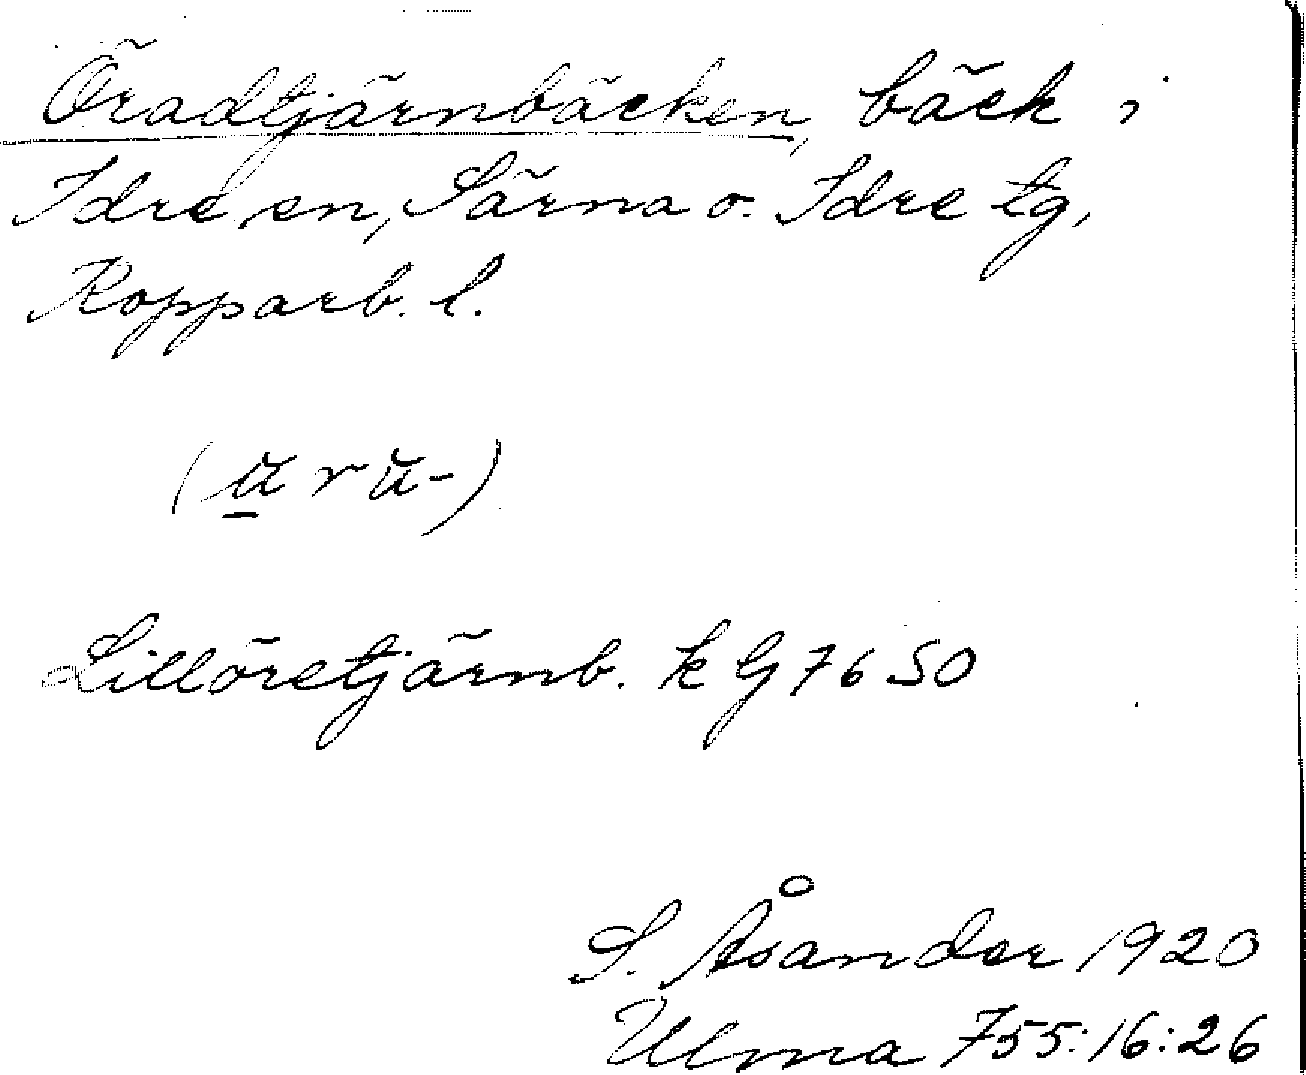 Öradtjärnbäcken, bäck i
Idre sn, Särna o. Idre tg,
Kopparb. l.
(ŭ r ŭ-)
Lillöretjärnb. k G 76 SO
S. Åsander 1920
Ulma 755:16:26